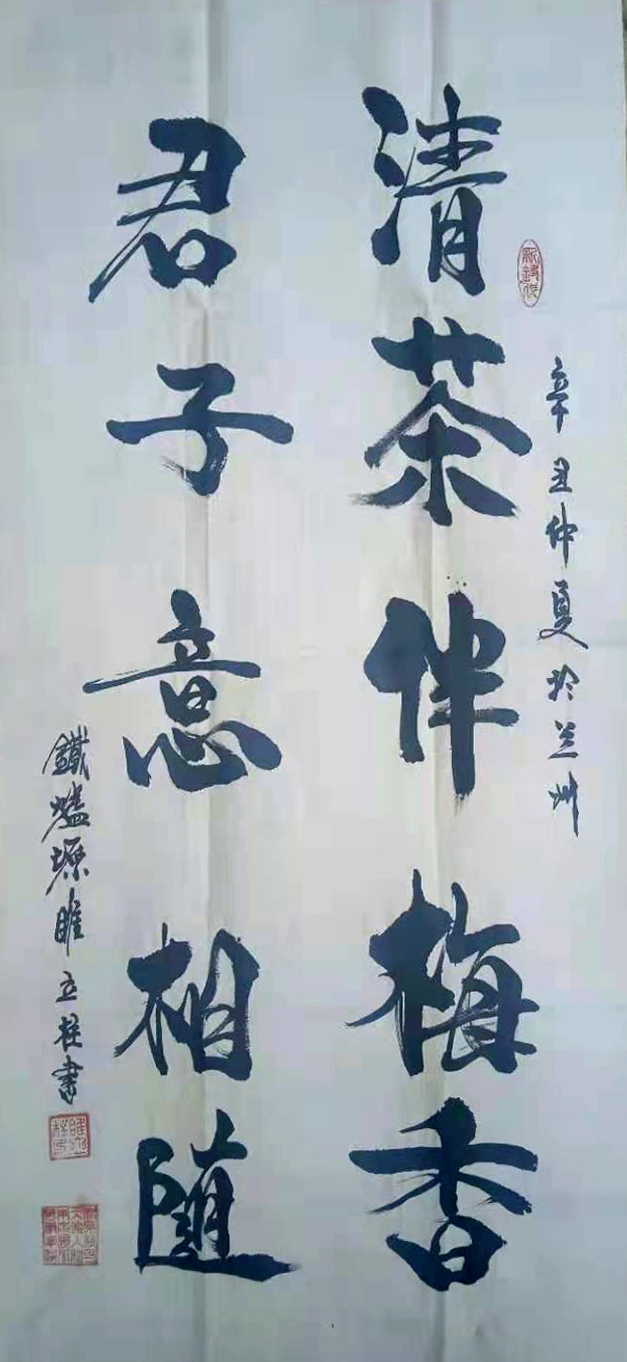 辛丑仲夏於兰州
清茶伴梅香
君子意相随
鐵爐塬睢立柱書